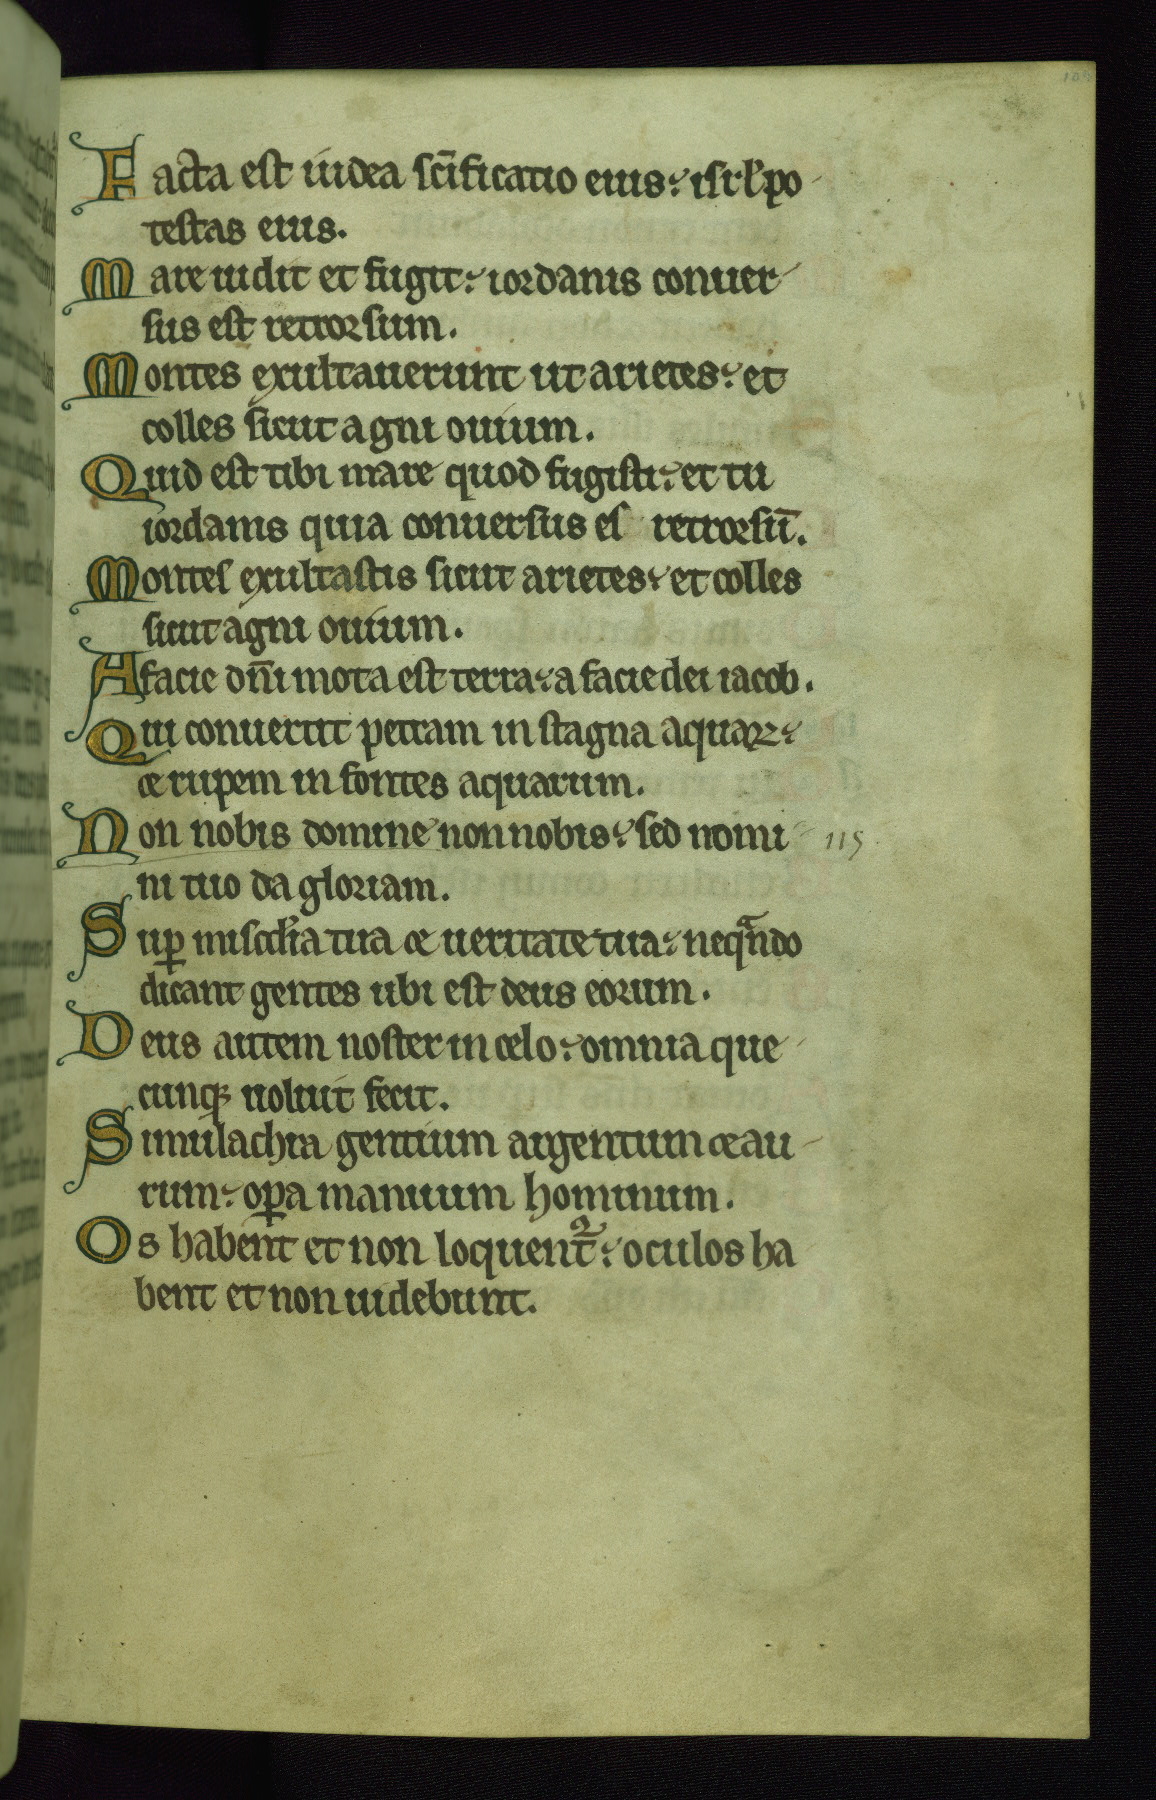 Facta est iudea sc̄ificatio eius: isrl̄ po
testas eius.
Mare uidit et fugit: iordanis conuer
sus est retrorsum.
Montes exultauerunt ut arietes: et
colles sicut agni ouium.
Quid est tibi mare quod fugisti: et tu
iordanis quia conuersus es retrorsū.
Montes exultastis sicut arietes: et colles
sicut agni ouium.
A facie dn̄i mota est terra: a facie dei iacob.
Qui conuertit petram in stagna aquaꝝ:
& rupem in fontes aquarum.
Non nobis domine non nobis: sed nomi 115
ni tuo da gloriam.
Suꝑ misc̄dia tua & ueritate tua: neqͣndo
dicant gentes ubi est deus eorum.
Deus autem noster in celo: omnia que
cunqꝫ uoluit fecit.
Simulachra gentium argentum & au
rum: oꝑa manuum hominum.
Os habent et non loquent᷑: oculos ha
bent et non uidebunt.